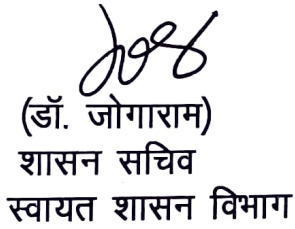 (डॉ. जोगाराम)
शासन सचिव
स्वायत शासन विभाग